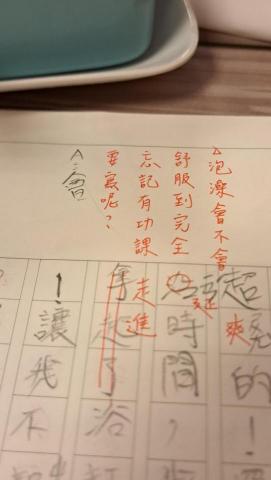 △泡澡會不會
舒服到完全
忘記有功課
要寫呢？
A：會
超
爽
的！
時間，
走進
了浴
！讓我不